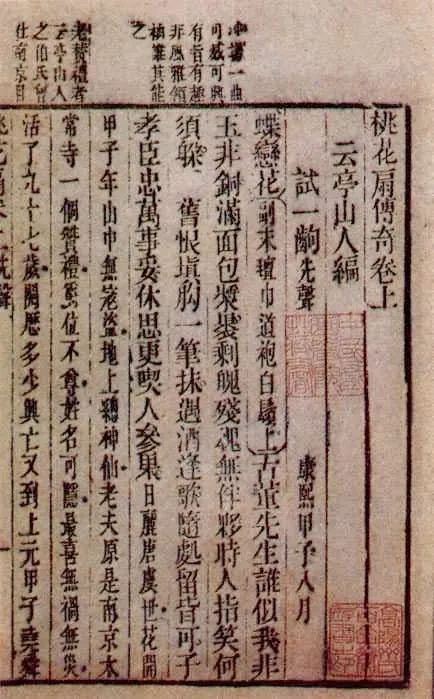 冲場一曲
可感可興
有旨有趣
非風雅領
袖誰其能
之
老贊禮者
云亭山人
之伯氏曾
仕南京目
桃花扇傳奇卷上
云亭山人編
試一齣先聲 康熙甲子八月
蝶戀花〔副末氊巾道袍白鬚上〕古董先生誰似我非
玉非銅滿面包漿裹剩魄殘魂無伴夥時人指笑何
須躲 舊恨塡胸一筆抹遇酒逢歌隨處留皆可子
孝臣忠萬事妥休思更喫人參果日麗唐虞世花開
甲子年山中無寇盜地上總神仙老夫原是南京太
常寺一個贊禮爵位不尊姓名可隱最喜無禍無災
活了九十七歲閱歷多少興亡又到上元甲子堯舜
桃花扇卷上 先聲